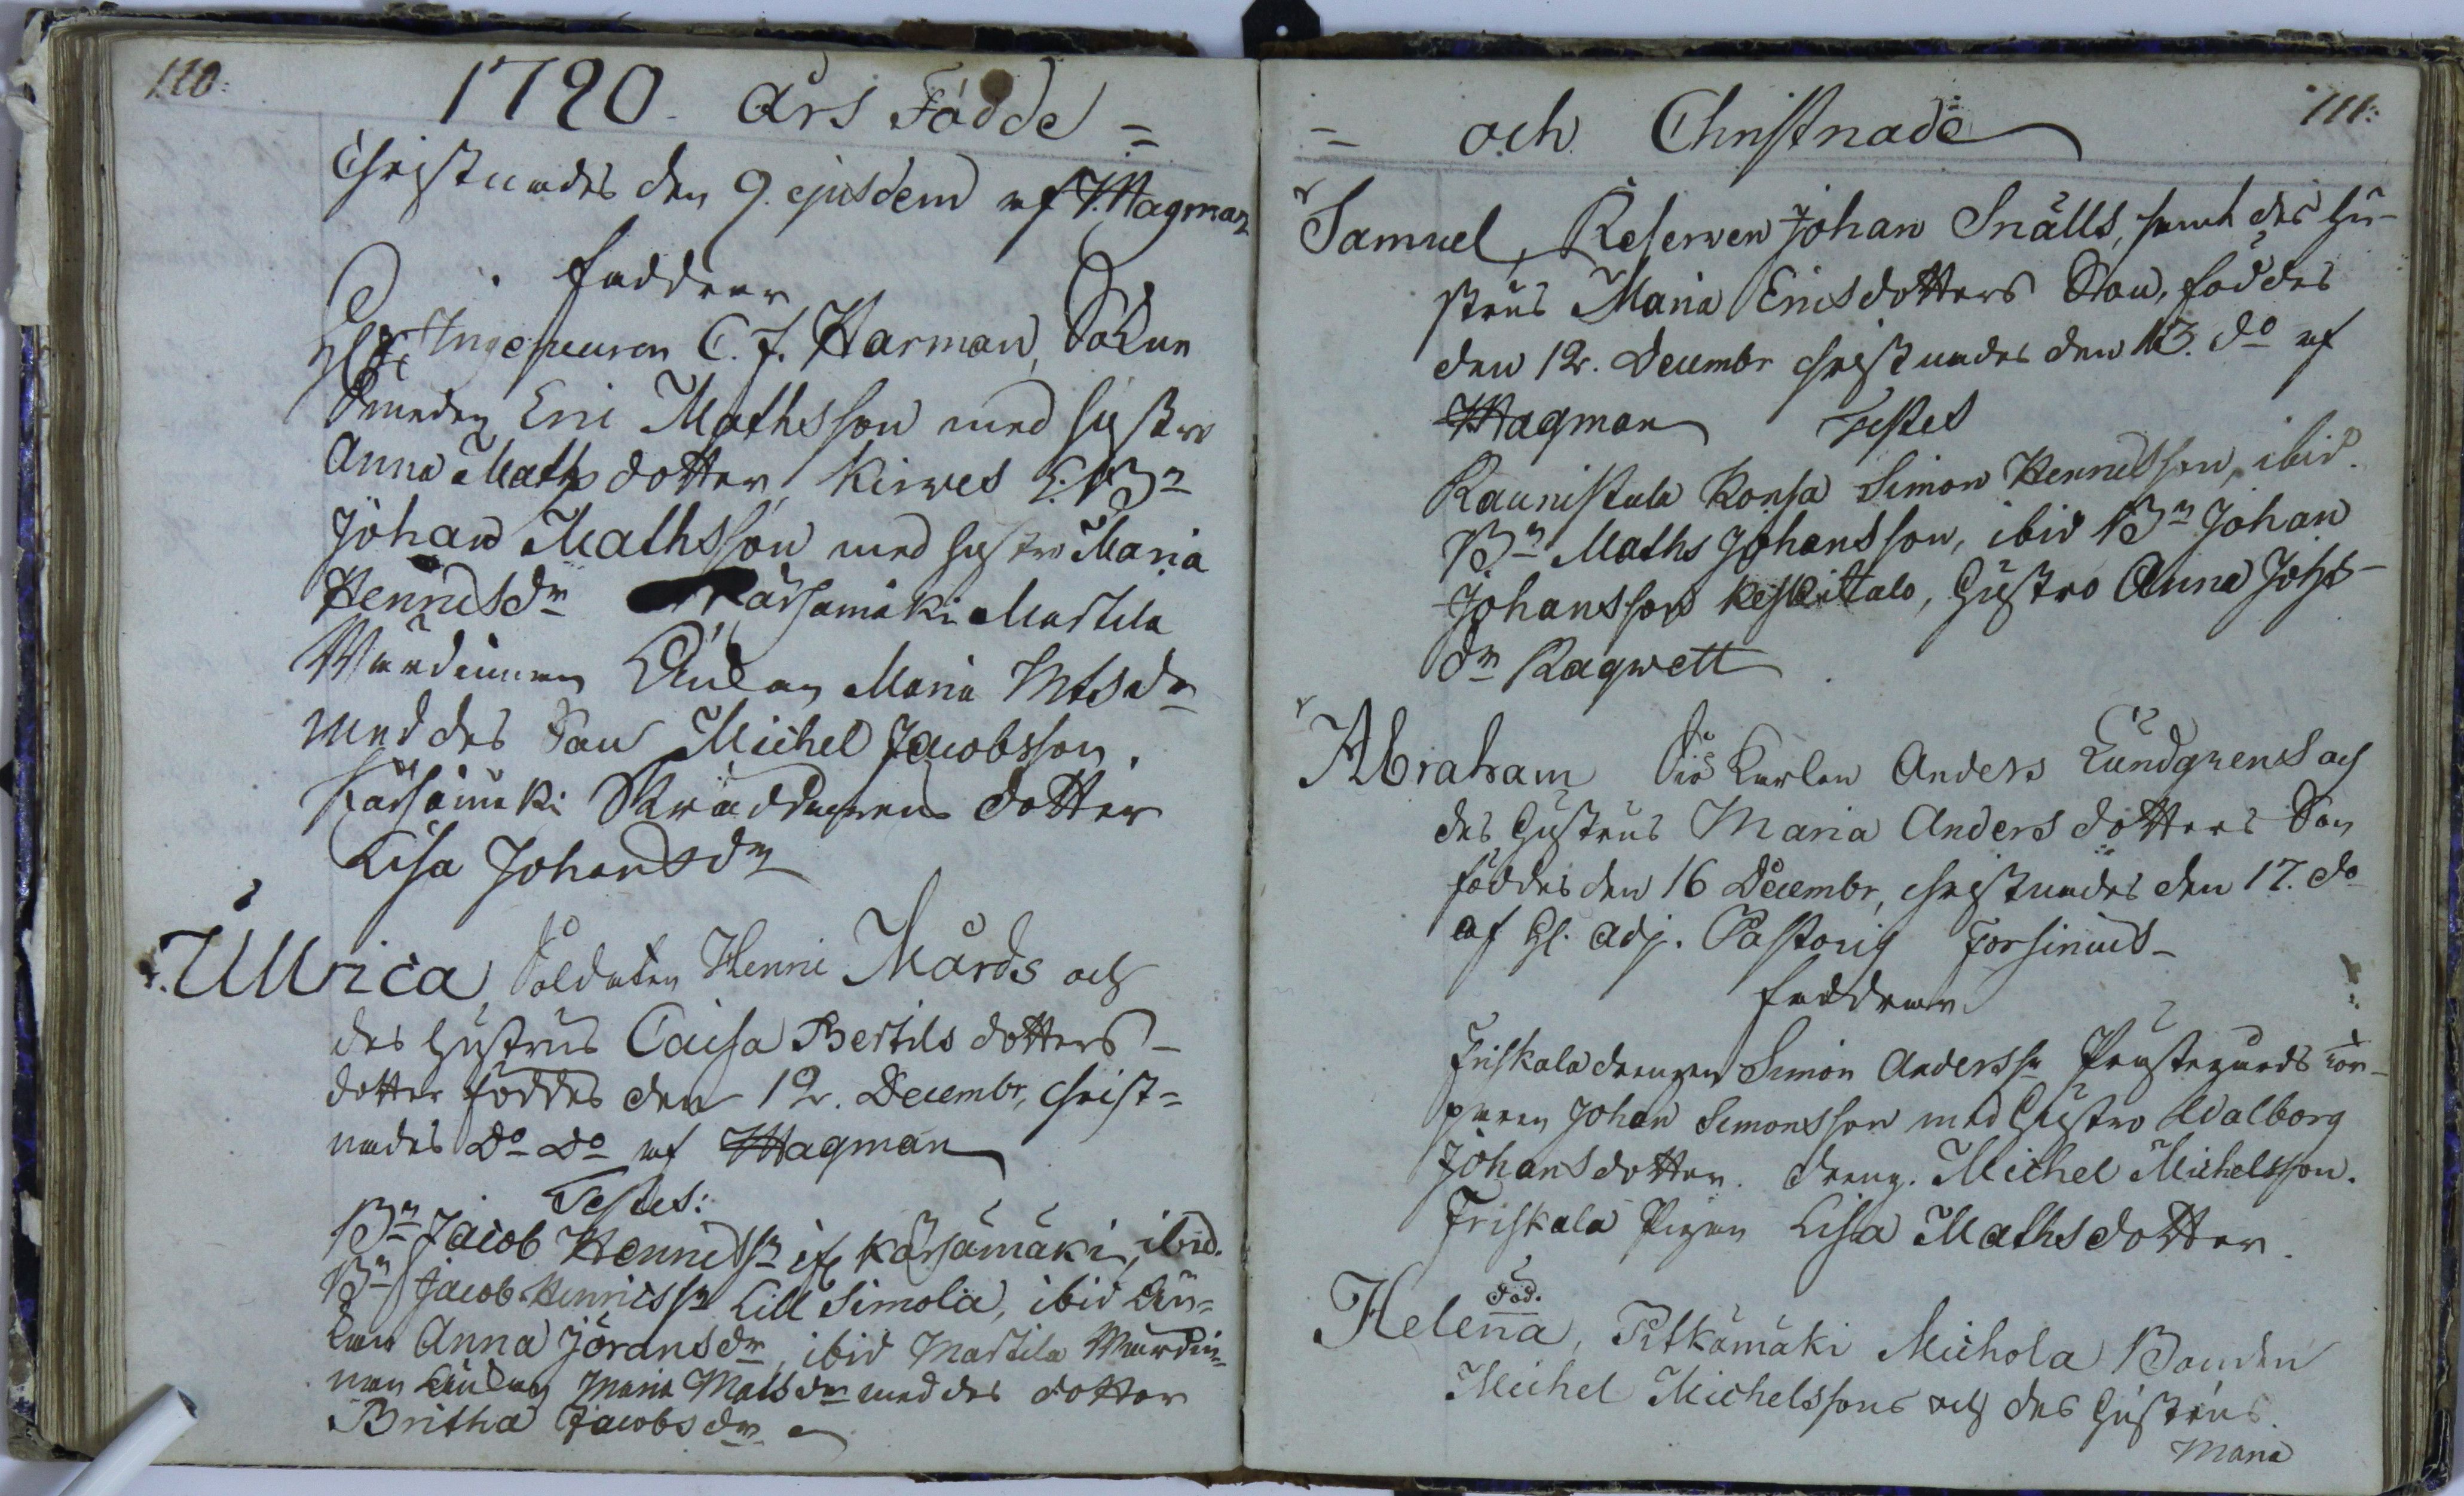 110:
1790. års Födde =
Christnades den 9. ejusdem af Wagman
Faddrar
Ingenieuren C. J. Harman, Sokne
Smeden Eric Mathsson med hustro
Anna Maths dotter, Kirves Bn
Johan Mathsson med hustro Maria
Henricsdr Kärsämäki Martila
Wärdinnan Enkan Maria Mtsdr
med des Son Michel Jacobsson.
Kärsämäki Skräddarens dotter
Lisa Johansdr
Ullrica, Soldaten Henric Mårds och
des hustrus Caisa Bertils dotters
dotter föddes den 12. Decembr, Christ=
nades Do Do af Wagman
Testes:
Bn Jacob Henricssn if. Kärsämäki, ibid.
Bn Jacob Henricssn Lill Simola, ibid En=
kan Anna Jöransdr, ibid Martila Wärdin=
nan Enkan Maria Matsdr med des dotter
Britha Jacobsdr
111:
= och Christnade
Samuel, Reserven Johan Snälls, samt des hu-
strus Maria Ericsdotters Son, föddes
den 12. Decembr Christnades den 13. do af
Wagman Testes
Raunistula Konsa Simon Henricsson, ibid.
Bn Maths Johansson, ibid Bn Johan
Johansson Keskitalo, Hustro Anna Johs-
dr Ragwett
Abraham Siö Karlen Anders Lundgrens och
des Hustrus Maria Anders dotters Son
föddes den 16 Decembr, Christnades den 17. do
af H. Adj. Pastoris Forsinius-
Faddrar
Friskala drengen Simon Anderssn Prästegårds tor-
paren Johan Simonsson med Hustro Walborg
Johansdotter. dreng. Michel Michelsson.
Friskala Pigan Lisa Mathsdotter.
Föd.
Helena, Pitkämäki Michola Bonden
Michel Michelssons och des Hustrus.
Maria